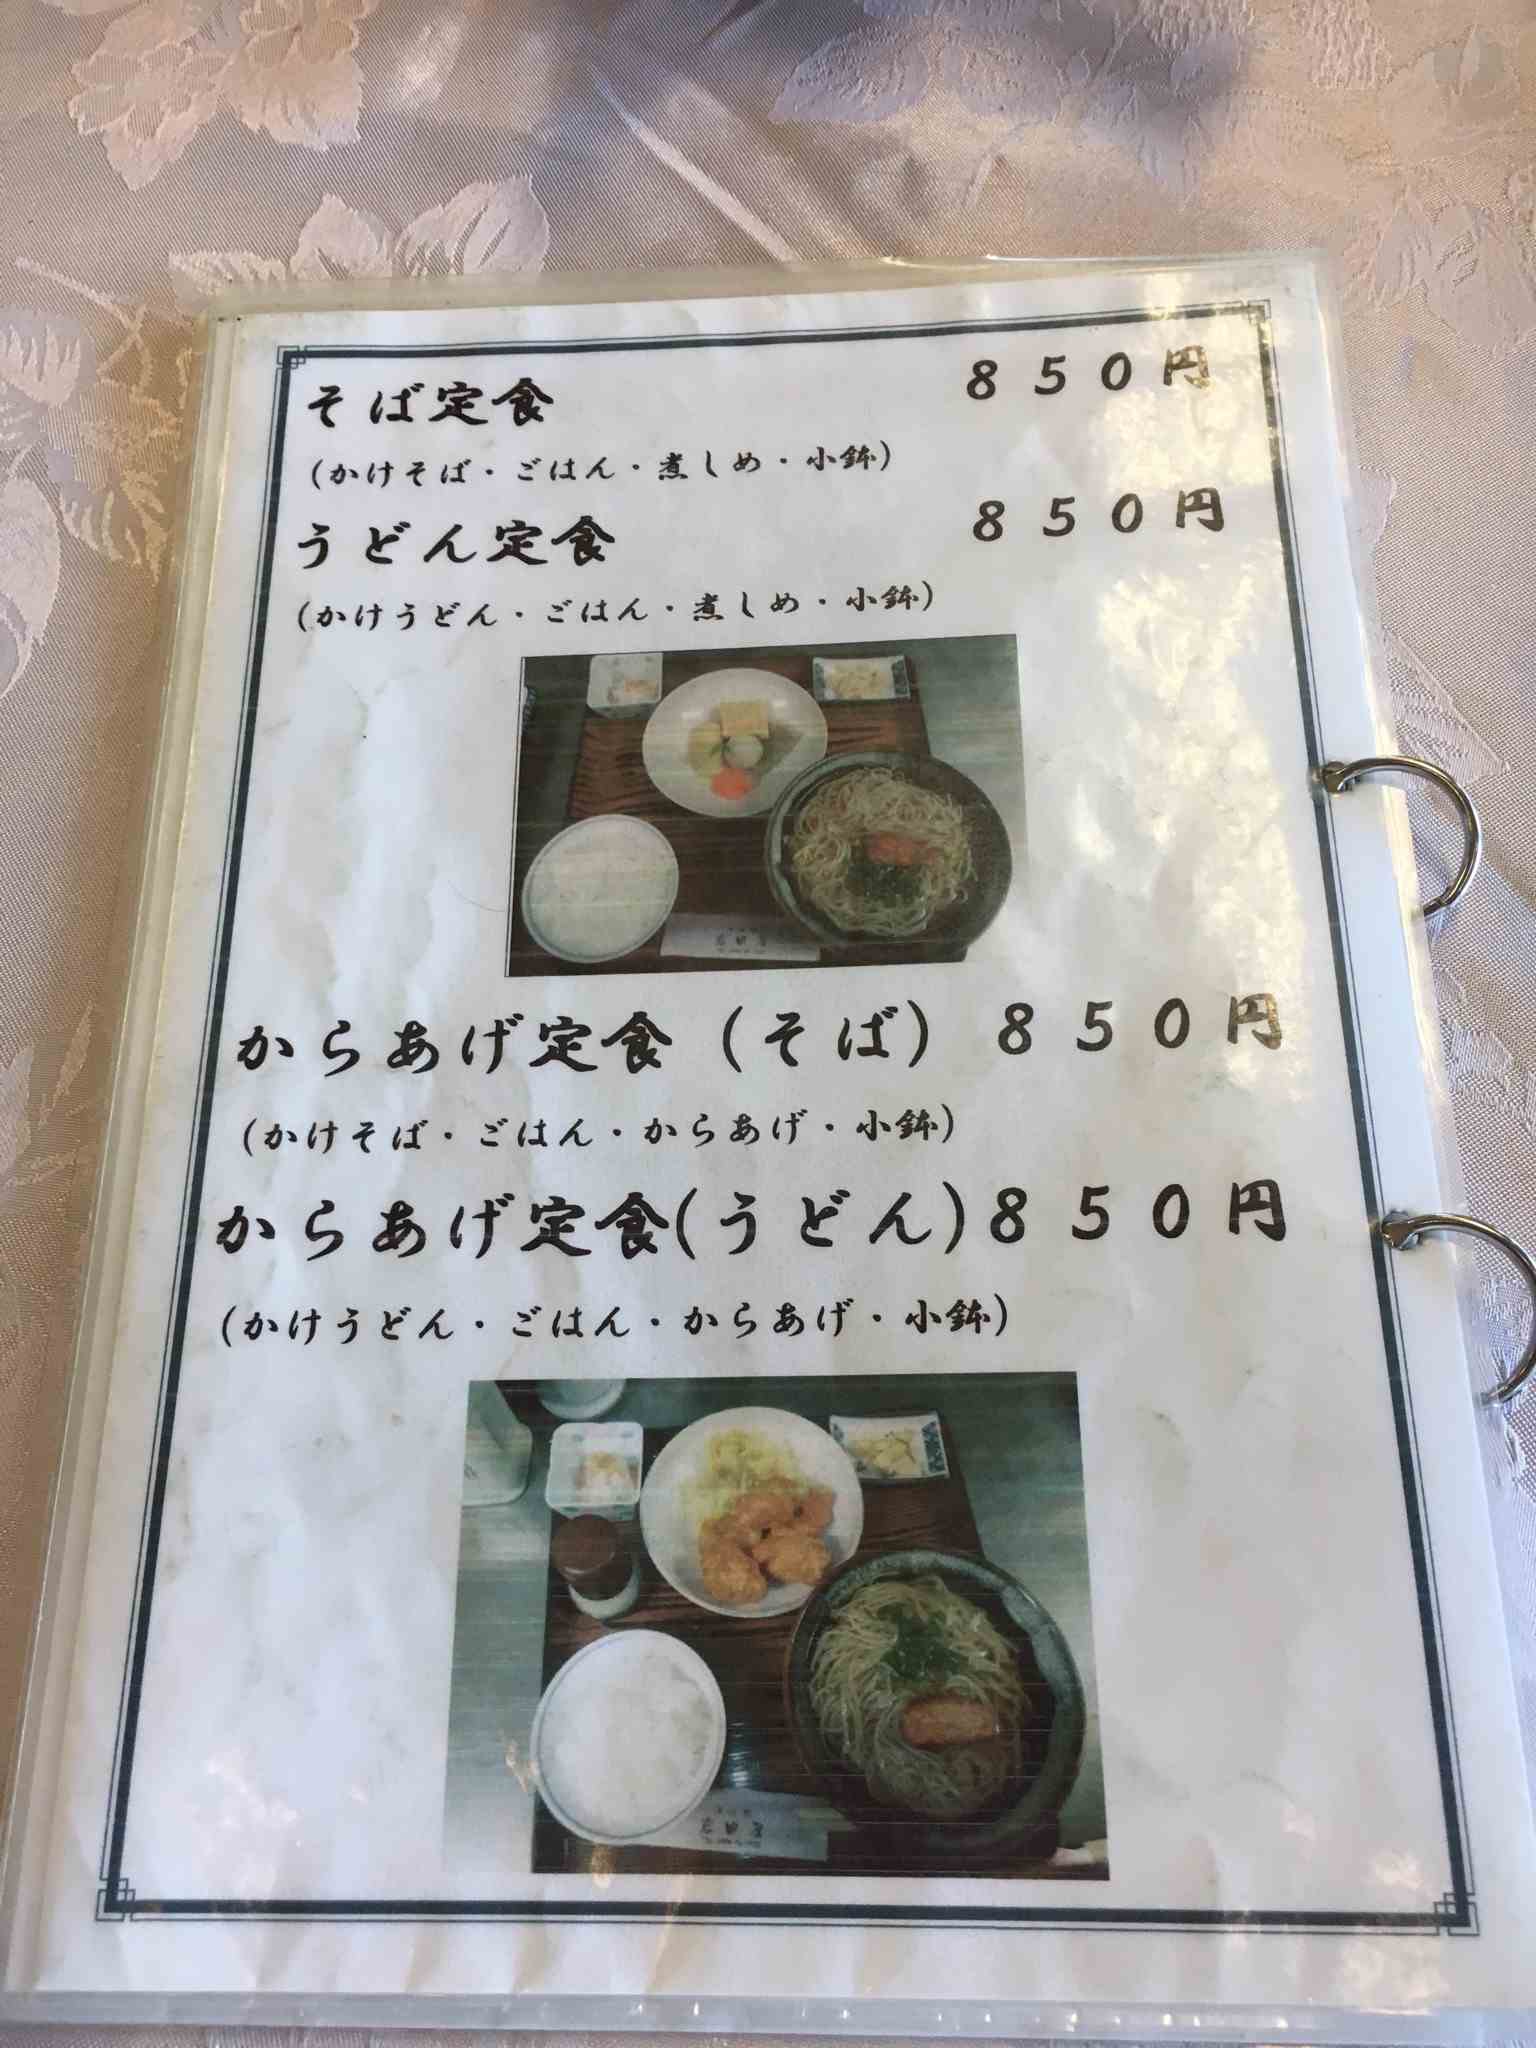 そば定食 ８５０円
(かけそば・ごはん・煮しめ・小鉢)
うどん定食 ８５０円
(かけうどん・ごはん・煮しめ・小鉢)
からあげ定食（そば）８５０円
(かけそば・ごはん・からあげ・小鉢)
からあげ定食(うどん)８５０円
(かけうどん・ごはん・からあげ・小鉢)